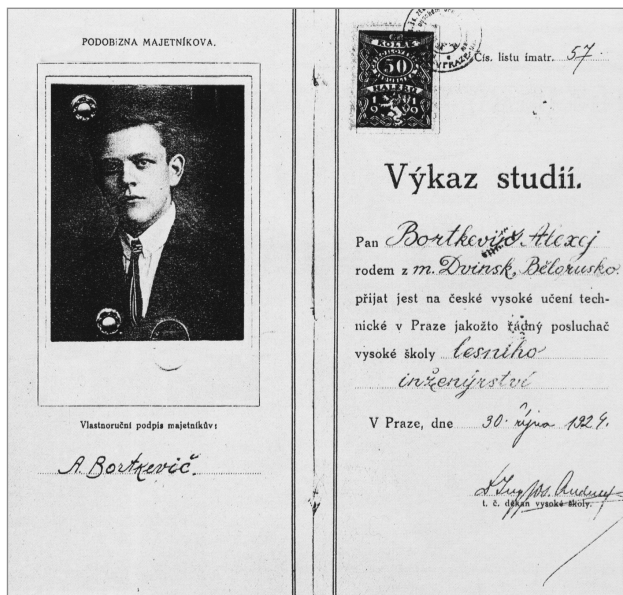 PODOBIZNA MAJETNÍKOVA.
Vlastnoruční podpis majetníkův:
A. Bortkevič.
KOLEK
50
HALÉŘŮ
Čís. listu imatr. 57
Výkaz studií.
Pan Bortkevič Alexej
rodem z m. Dvinsk, Bělorusko.
přijat jest na české vysoké učení tech-
nické v Praze jakožto řádný posluchač
vysoké školy lesního
inženýrství
V Praze, dne 30. října 1924.
t. č. děkan vysoké školy.